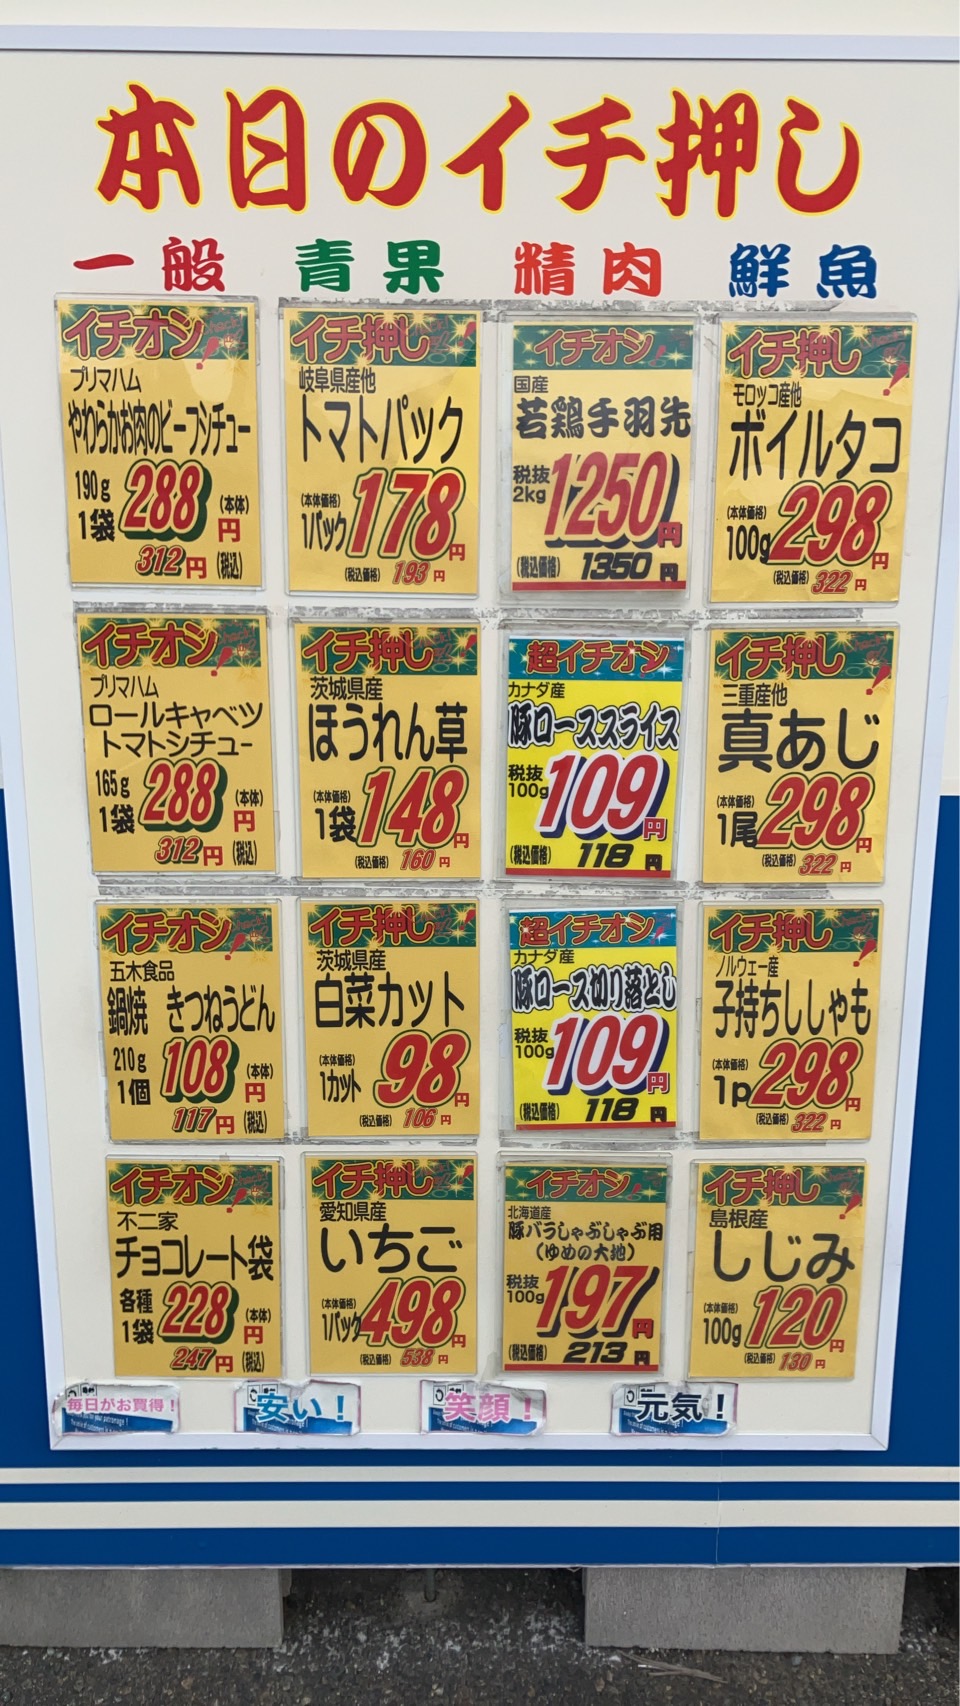 本日のイチ押し
一般
イチオシ!
プリマハム
やわらかお肉のビーフシチュー
190g
1袋
288
(本体)
円
312円(税込)
イチオシ!
プリマハム
ロールキャベツ
トマトシチュー
165g
1袋
288
(本体)
円
312円(税込)
イチオシ!
五木食品
鍋焼 きつねうどん
210g
1個
108
(本体)
円
117円(税込)
イチオシ!
不二家
チョコレート袋
各種
1袋
228
(本体)
円
247円(税込)
青果
イチ押し!
岐阜県産他
トマトパック
(本体価格)
1パック178円
(税込価格)193円
イチ押し!
茨城県産
ほうれん草
(本体価格)
1袋148円
(税込価格)160円
イチ押し!
茨城県産
白菜カット
(本体価格)
1カット98円
(税込価格)106円
イチ押し!
愛知県産
いちご
(本体価格)
1パック498円
(税込価格)538円
精肉
イチオシ!
国産
若鶏手羽先
税抜
2kg
1250円
(税込価格)1350円
超イチオシ!
カナダ産
豚ローススライス
税抜
100g
109円
(税込価格)118円
超イチオシ!
カナダ産
豚ロース切り落とし
税抜
100g
109円
(税込価格)118円
イチオシ!
北海道産
豚バラしゃぶしゃぶ用
(ゆめの大地)
税抜
100g
197円
(税込価格)213円
鮮魚
イチ押し!
モロッコ産他
ボイルタコ
(本体価格)
100g298円
(税込価格)322円
イチ押し!
三重産他
真あじ
(本体価格)
1尾298円
(税込価格)322円
イチ押し!
ノルウェー産
子持ちししゃも
(本体価格)
1p298円
(税込価格)322円
イチ押し!
島根産
しじみ
(本体価格)
100g120円
(税込価格)130円
毎日がお買得!
安い!
笑顔!
元気!